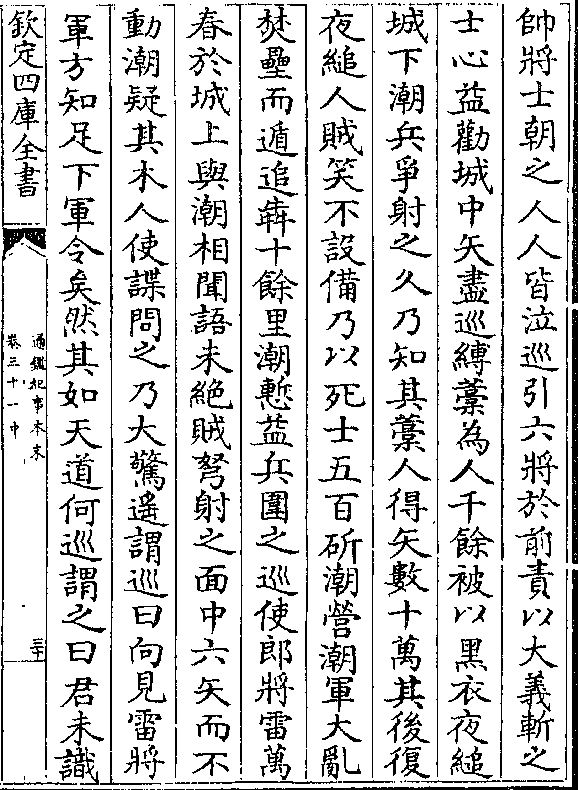 帥將士朝之人人皆泣巡引六將於前責以大義斬之
士心益勸城中矢盡巡縛藁為人千餘被以黑衣夜縋
城下潮兵爭射之久乃知其藁人得矢數十萬其後復
夜縋人賊笑不設備乃以死士五百斫潮營潮軍大亂
焚壘而遁追犇十餘里潮慙益兵圍之巡使郎將雷萬
春於城上與潮相聞語未絶賊弩射之面中六矢而不
動潮疑其木人使諜問之乃大驚遥謂巡曰向見雷將
軍方知足下軍令矣然其如天道何巡謂之曰君未識
欽定四庫全書
通鑑紀事本末
卷三十一中
三十